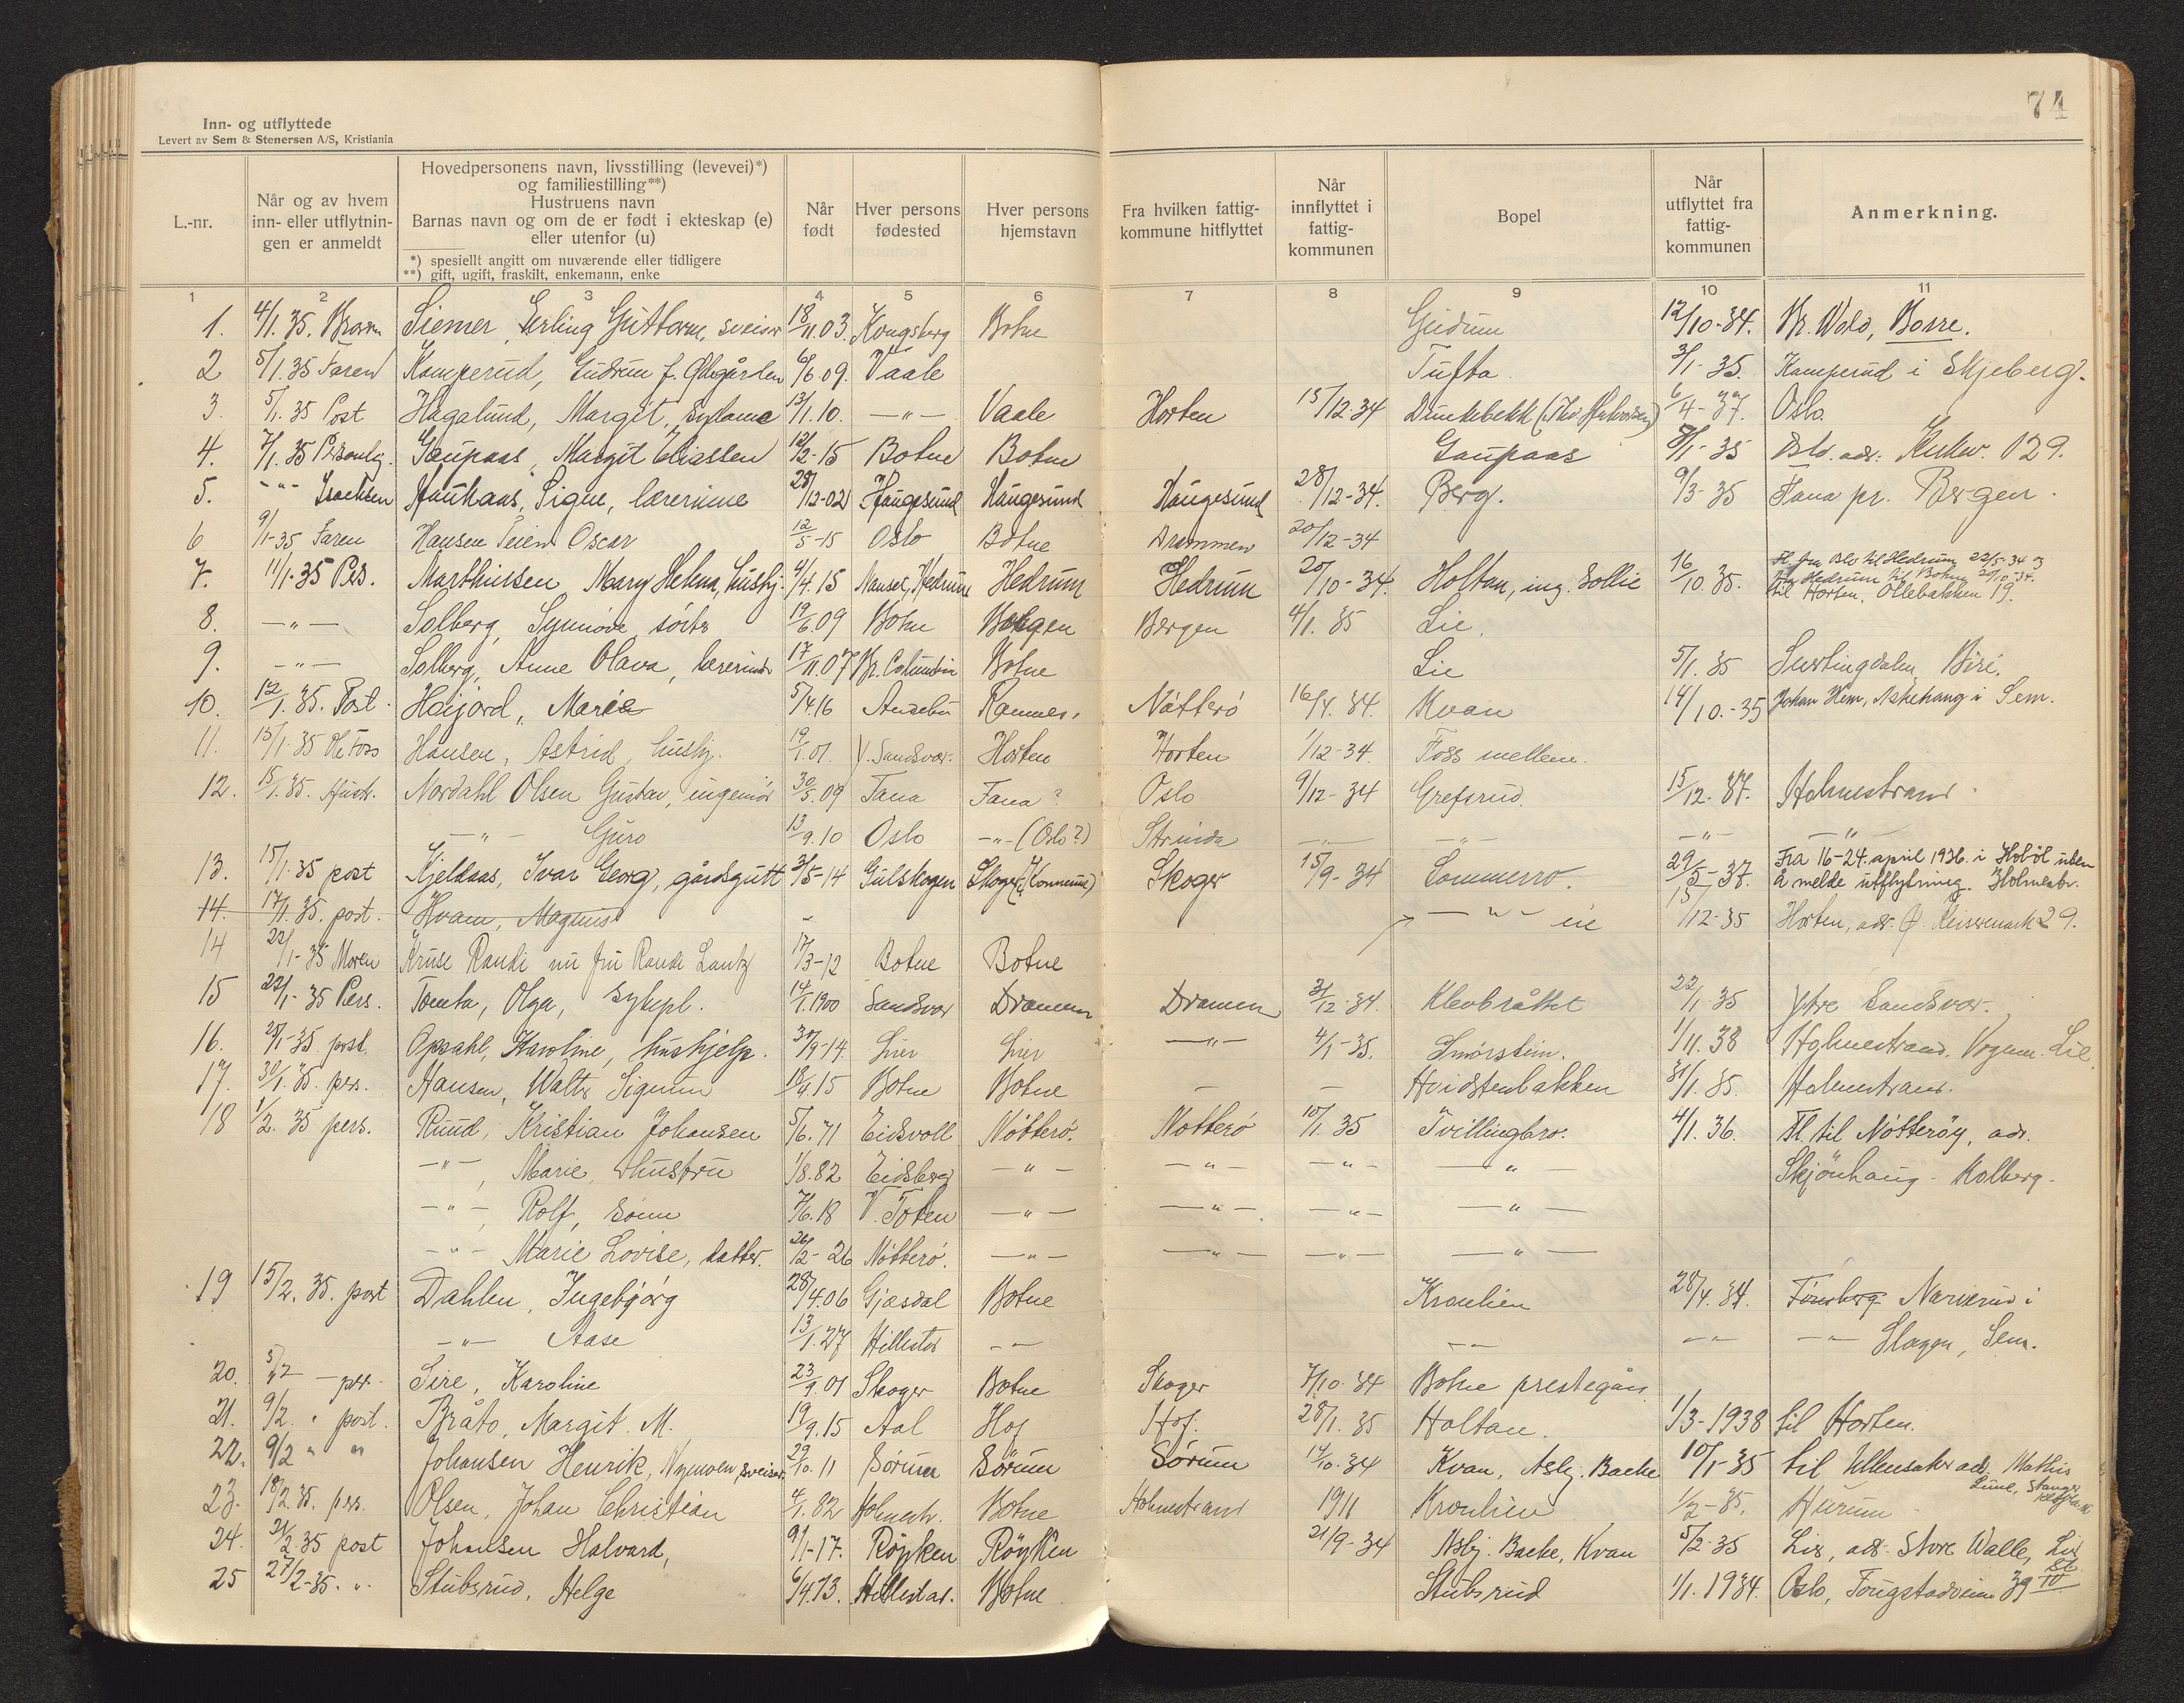 74
Inn- og utflyttede
Levert av Sem & Stenersen A/S, Kristiania
L.-nr.
Når og av hvem inn- eller utflytnin- gen er anmeldt
Hovedpersonens navn, livsstilling (levevei)*)
og familiestilling**)
Hustruens navn
Barnas navn og om de er født i ekteskap (e)
eller utenfor (u)
*) spesiellt angitt om nuværende eller tidligere
**) gift, ugift, fraskilt, enkemann, enke
Når født
Hver persons fødested
Hver persons hjemstavn
Fra hvilken fattig- kommune hitflyttet
Når innflyttet i fattig- kommunen
Bopel
Når utflyttet fra fattig- kommunen
Anmerkning.
1 2 3 4 5 6 7 8 9 10 11
1. 4/1. 35. Siemer, Erling Guttorm, sveiser 18/11.03. Kongsberg Botne Gudum 12/10-34. Br. Wold, Borre.
2 5/1.35 Faren Kamperud, Gudrun f. 6/6.09. Vaale Tufta 3/1-35. Kamperud i Skjeberg.
3. 5/1.35 Post Hagalund, Margit, sydame 13/1.10. —"— Vaale Horten 15/12-34 6/4-37. Oslo.
4. 7/1.35 Personlig. Gaupaas, Margit Eliassen 12/2-15 Botne Botne Gaupaas 8/1-35 Oslo. adr.: 129.
5. -"- Isachsen Haukaas, Signe, lærerinne 28/12-02 Haugesund Haugesund Haugesund 28/12-34. Berg. 9/3-35 Fana pr. Bergen.
6 9/1-35 Faren Hansen Teien Oscar 12/5-15 Oslo Botne Drammen 20/12-34
7. 11/1-35 Pers. Marthinsen Mary Helena, hushj. 4/4.15 Nanset, Hedrum Hedrum Hedrum 20/10-34. Holtan, ing. Sollie 16/10.35. Fl. fra Oslo til Hedrum 22/5-34 og
fra Hedrum til Botne 20/10-34.
til Horten, Ollebakken 19.
8. —"— Solberg, Synnöve 19/6.09 Botne Bergen Bergen 4/1.35 Lie.
9. —"— Solberg, Anne Olava, lærerinde 17/11.07 Br. Columbia Botne Lie 5/1.35 Biri.
10. 12/1.35. Post. Höijord, Marie 5/4.16 Andebu Ramnes. Nötterö 16/4.34. Kvan 14/10.-35 Johan Hem, Askehaug i Sem.
11. 15/1.35 Ole Foss Hansen, Astrid, hushj. 19/1.01. V. Sandsvær. Horten Horten 1/12-34. Foss mellem.
12. 15/1.35. Nordahl Olsen Gustav, ingeniör 30/5.09 Fana Fana? Oslo 9/12-34 Grefsrud. 15/12.37. Holmestrand.
—"— Guro 13/9.10 Oslo -"- (Oslo?) Strinda —"— —"— —"— —"—
13. 15/1.35 post Kjeldaas, Ivar Georg, gårdsgutt 31/5-14 Gulskogen Skoger Skoger 15/9-34 Sommerro. 29/5-37. Fra 16-24. april 1936. i Hobøl uten
å melde utflytning. Holmestr.
14. 17/1.35. post. Hvam, Magnus
14 22/1-35 Moren Kruse Randi nu fru Randi Lantz 17/3-12 Botne Botne —"— 15/12-35 Horten, adr. 29.
15 22/1-35 Pers. Tomta, Olga, sykepl. 14/1.1900 Sandsvær Dramen Dramen 31/12-34. Klevbråttet 22/1.35 Ytre Sandsvær.
16. 28/1-35 post. Opsahl, Karoline, hushjelp. 30/9-14. Lier Lier —"— 4/1-35. Smörstein. 1/11.38 Holmestrand.
17. 30/1.35. pers. Hansen, Walter Sigurd 18/4.15 Botne Botne — — Hvidstenbakken 31/1.35. Holmestrand.
18 1/2.35 pers. Ruud, Kristian Johansen 5/6.71 Eidsvoll Nötterö. Nötterö 10/1.35 Tvillingbro. 4/1.36. Fl. til Nötteröy, adr.
—"—, Marie, Hustru 1/8.82 Eidsberg —"— —"— —"— —"— Skjönhaug - Kolberg.
—"—, Rolf, Sönn 7/6.18 V. Toten —"— —"— —"— —"—
—"— Marie Lovise, datter. 26/2-26 Nötterö. —"— —"— —"— —"—
19 15/2.35. post Dahlen, Ingebjörg 28/4.06 Gjesdal Botne Kronlien 28/4.34. Tönsberg i
—"— Aase 13/1.27 Hillestad —"— —"— —"— —"— Slagen, Sem.
20. 5/2 — per. Sire, Karoline 23/9.01 Skoger Botne Skoger 7/10.34 Botne prestegård
21. 9/2. " post. Bråto, Margit M. 19/9.15 Aal Hof Hof. 28/1.35 Holtan. 1/3-1938 til Horten.
22. 9/2 " " Johansen Henrik, Nymoen sveiser 29/10.11 Sörum Sörum Sörum 14/10.34 Kvan, Asbj. Bache 10/1-35 til Ullensaker adr. Mathis
23. 18/2.35. pers. Olsen, Johan Christian 4/1.82 Holmestr. Botne Holmestrand 1911 Kronlien 1/2-35. Hurum
24. 21/2.35 post Johansen Halvard, 9/1-17. Röyken Röyken 21/9-34 Asbj. Bache, Kvan 5/2-35 Lier, adr. Store Walle, Lier
25 27/2-35. ". Stubsrud, Helge 6/4.13. Hillestad. Botne Stubsrud 1/1.1934. Oslo, 39 IV